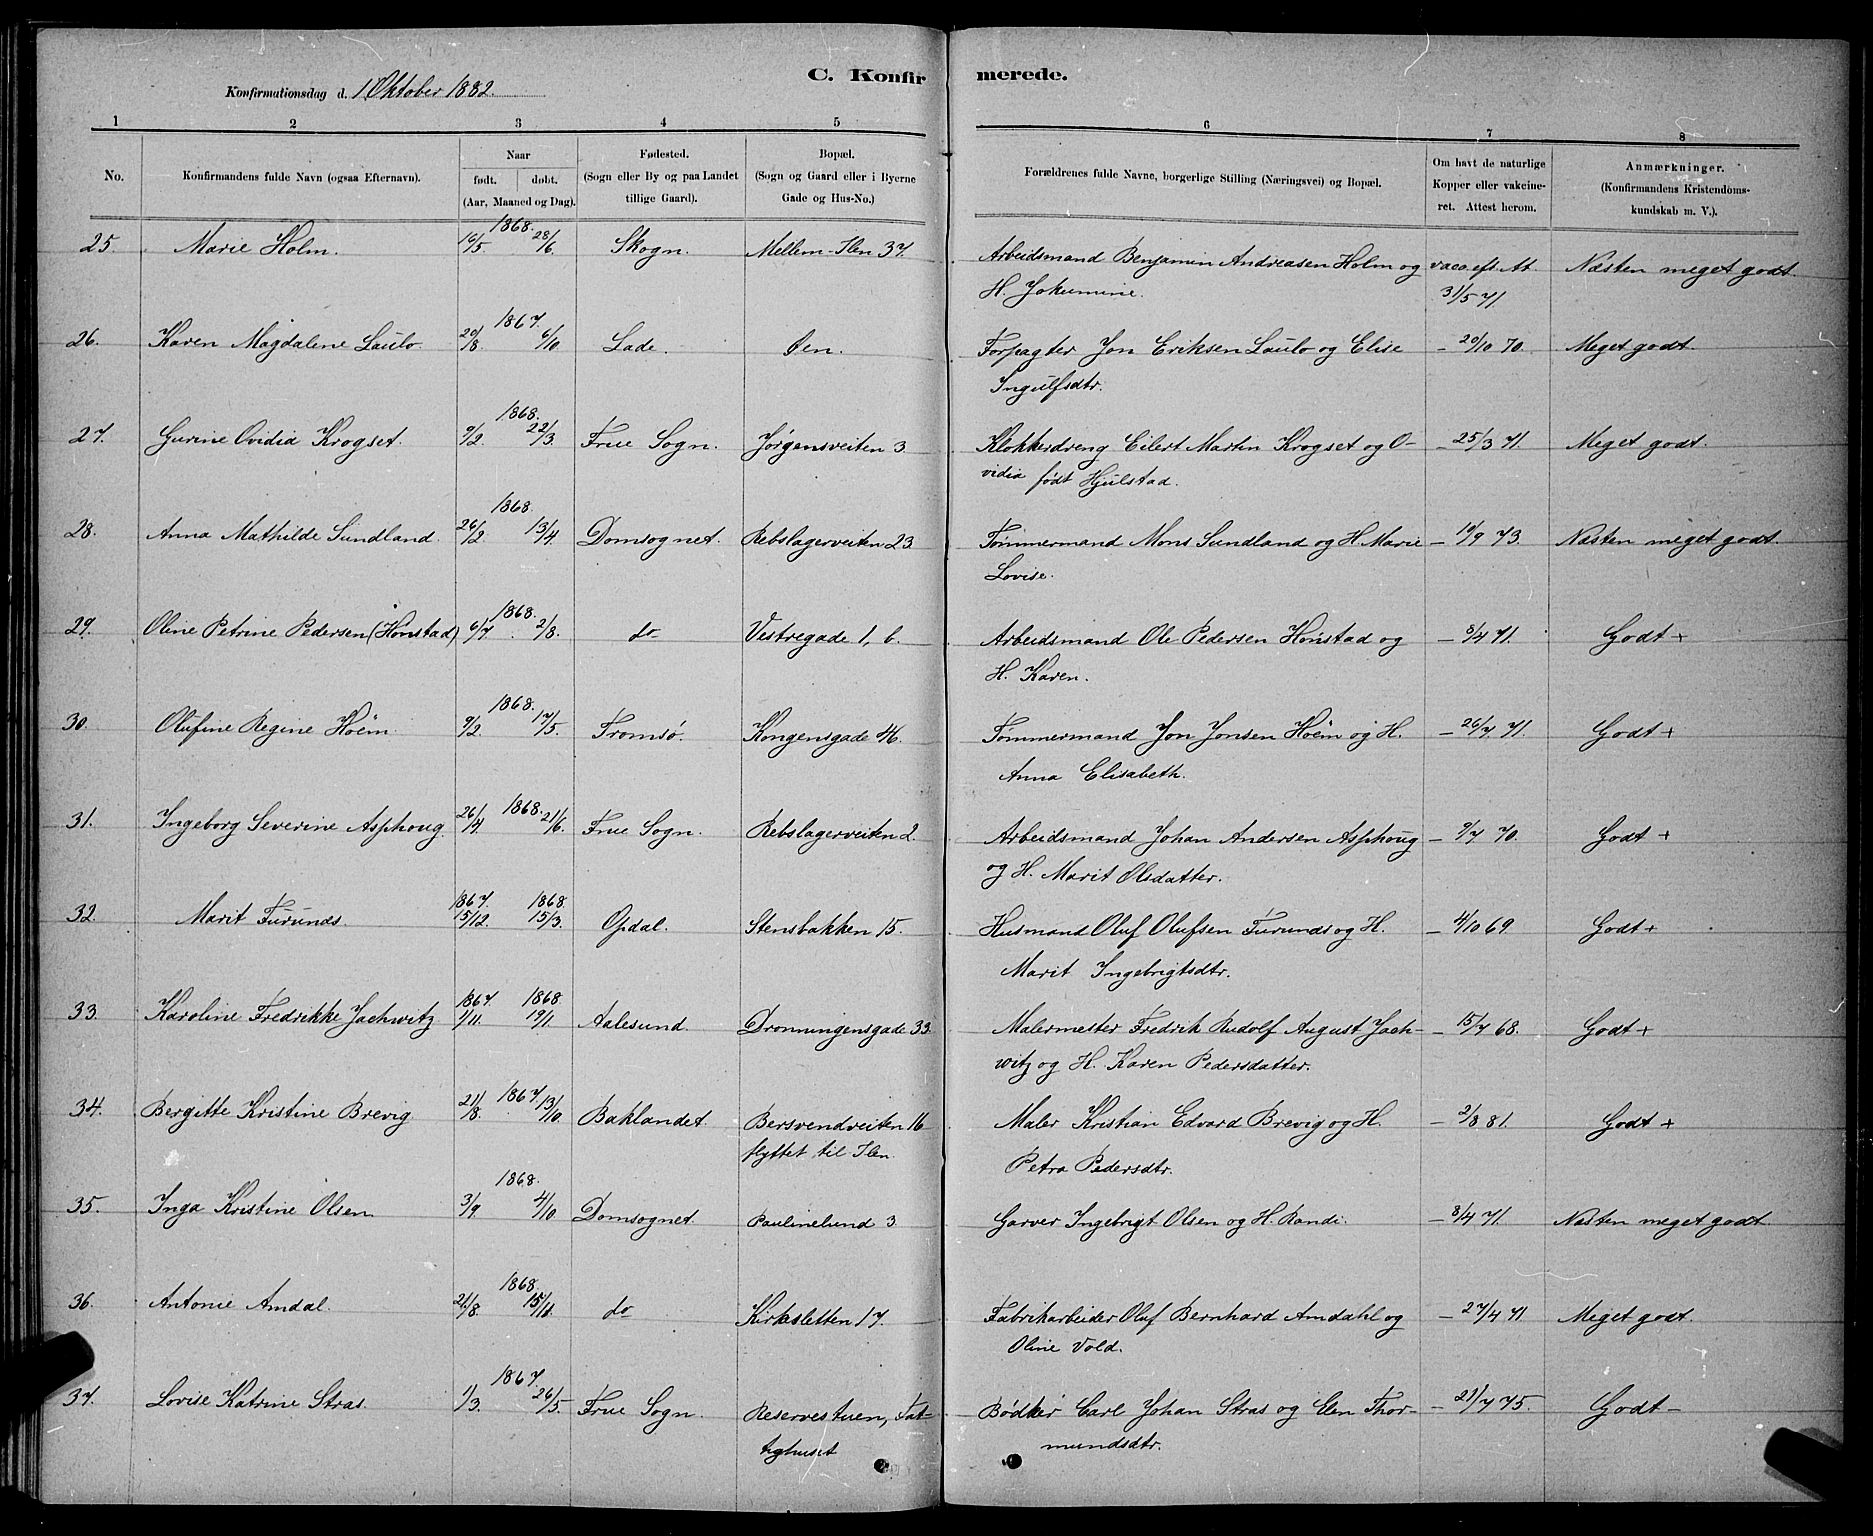 C. Konfirmerede.
Konfirmationsdag d. 1 Oktober 1882.
1 2 3 4 5 6 7 8
No. | Konfirmandens fulde Navn (ogsaa Efternavn). | Naar født. døbt. (Aar, Maaned og Dag). | Fødested. (Sogn eller By og paa Landet tillige Gaard). | Bopæl. (Sogn og Gaard eller i Byerne Gade og Hus-No.) | Forældrenes fulde Navne, borgerlige Stilling (Næringsvei) og Bopæl. | Om havt de naturlige Kopper eller vakcineret. Attest herom. | Anmærkninger. (Konfirmandens Kristendomskundskab m. V.).
25. Marie Holm. 1868. 16/5 28/6. Skogn. Mellem-Ilen 37. Arbeidsmand Benjamin Andreasen Holm og vacc. eft. At. Næsten meget godt.
H. Jokumine. 31/5 71
26. Karen Magdalene Laulo 1867. 20/8. 6/10 Lade. Øen. Forpagter Jon Eriksen Laulo og Elise – 20/10 70. Meget godt.
Ingulfsdtr.
27. Gurine Ovidia Krogset. 1868. 9/2. 22/3. Frue Sogn. Jørgensveiten 3. Klokkerdreng Eilert Marten Krogset og O- – 25/3 71. Meget godt.
vidia født Hjulstad.
28. Anna Mathilde Sundland. 1868. 26/2 13/4. Domsognet. Rebslagerveiten 23 Tømmermand Mons Sundland og H. Marie – 10/9 73. Næsten meget godt.
Lovise.
29. Oline Petrine Pedersen (Honstad) 1868. 6/7 2/8. do Vestregade 1, b. Arbeidsmand Ole Pedersen Honstad og – 3/4 71. Godt +
H. Karen.
30. Olufine Regine Hoëm. 1868. 9/2 17/5. Tromsø. Kongensgade 46. Tømmermand Jon Jonsen Hoëm og H. – 26/7 71. Godt +
Anna Elisabeth.
31. Ingeborg Severine Asphoug 1868. 26/4. 21/6. Frue Sogn. Rebslagerveiten 2. Arbeidsmand Johan Andersen Asphoug – 9/7 70. Godt +
og H. Marit Olsdatter.
32. Marit Furunds. 1867. 15/12. 1868 15/3. Opdal. Stensbakken 15. Husmand Oluf Olufsen Furunds og H. – 4/10 69. Godt +
Marit Ingebrigtsdtr.
33. Karoline Fredrikke Jachwitz 1867. 1/11. 1868. 19/1. Aalesund. Dronningensgade 33. Malermester Fredrik Rudolf August Jach- – 15/7 68. Godt +
witz og H. Karen Pedersdatter.
34. Bergitte Kristine Brevig 1867. 21/8. 13/10. Baklandet. Bersvendveiten 16 Maler Kristian Edvard Brevig og H. – 2/8 81. Godt +
flyttet til Ilen. Petra Pedersdtr.
35. Inga Kristine Olsen 1868. 3/9 4/10. Domsognet. Paulinelund 3 Garver Ingebrigt Olsen og H. Randi. – 3/4 71. Næsten meget godt
36. Antonie Amdal. 1868. 21/8. 15/11. do Kirkesletten 17. Fabrikarbeider Oluf Bernhard Amdahl og – 27/4 71 Meget godt.
Oline Vold.
37. Lovise Katrine Stras. 1867. 1/3. 26/5. Frue Sogn. Reservestuen, Fat- Bødker Carl Johan Stras og Elen Thor- – 21/7 75. Godt –
tighuset mundsdtr.